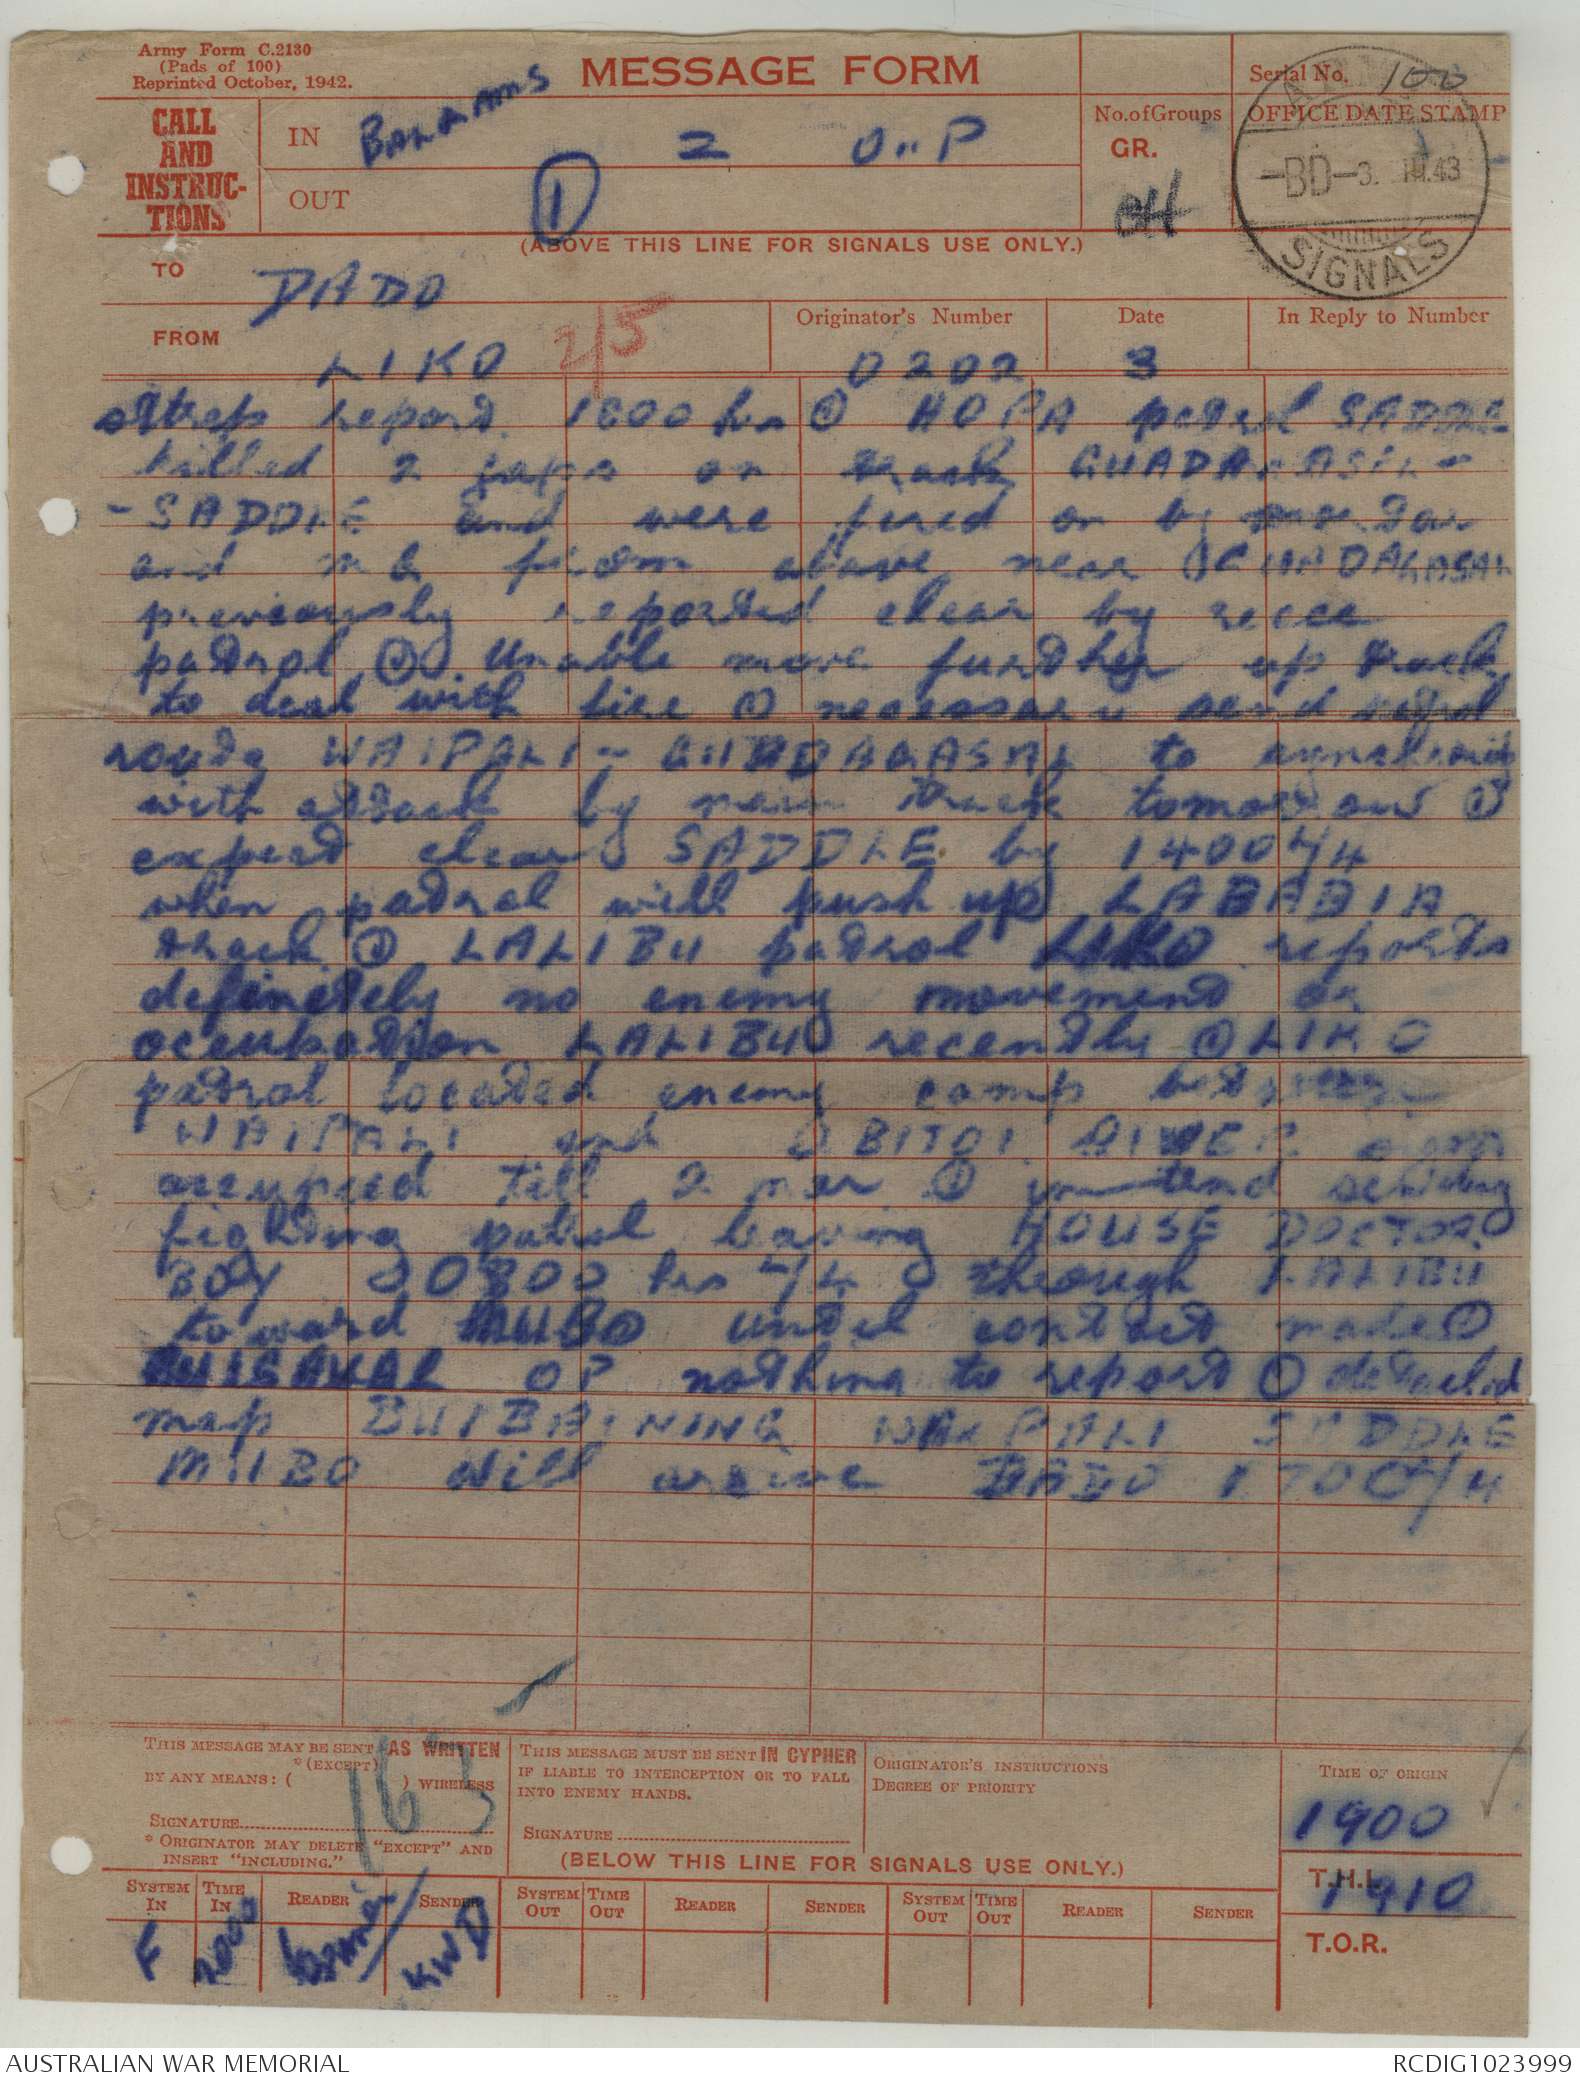 Army Form C.2130
(Pads of 100)
Reprinted October, 1942.
MESSAGE FORM
Serial No. 100
CALL
AND
INSTRUC-
TIONS
IN
2 O"P
No. of Groups
GR.
OFFICE DATE STAMP
-BD-3. III.43
SIGNALS
OUT
1
(ABOVE THIS LINE FOR SIGNALS USE ONLY.)
TO DADO
FROM LIKO
2/5
Originator's Number
0202
Date
3
In Reply to Number
sitrep report 1600 hrs ⊙ HOPA patrol SADDLE
killed 2 japs on track GUADAGASAL -
- SADDLE and were fired on by mortar
and m g from above near GUADAGASAL
previously reported clear by recce
patrol ⊙ Unable move further up track
to deal with fire ⊙ necessary send patrol
route WAIPALI - GUADAGASAL to
with attack by main track tomorrow ⊙
expect clear SADDLE by 1400 4/4
when patrol will push up LABABIA
track ⊙ LALIBU patrol LIKO reports
definetely no enemy movement or
occupation LALIBU recently ⊙ LIKO
patrol located enemy camp between
WAIPALI and BITOI RIVER
occupied till 2 mar ⊙ intend sending
fighting patrol leaving HOUSE DOCTOR
BOY 0800 hrs 4/4 through LALIBU
toward MUBO until contact made ⊙
GUISAVAL OP nothing to report ⊙ detailed
map BUIBAINING WAIPALI SADDLE
MUBO will arrive DADO 1700 4/4
THIS MESSAGE MAY BE SENT AS WRITTEN
*(EXCEPT)
BY ANY MEANS: ( ) WIRELESS
SIGNATURE
* ORIGINATOR MAY DELETE "EXCEPT" AND
INSERT "INCLUDING."
163
THIS MESSAGE MUST BE SENT IN CYPHER
IF LIABLE TO INTERCEPTION OR TO FALL
INTO ENEMY HANDS.
SIGNATURE
ORIGINATOR'S INSTRUCTIONS
DEGREE OF PRIORITY
TIME OF ORIGIN
1900
(BELOW THIS LINE FOR SIGNALS USE ONLY.)
T.H.I.
1910
T.O.R.
SYSTEM IN TIME IN READER SENDER SYSTEM OUT TIME OUT READER SENDER SYSTEM OUT TIME OUT READER SENDER
F 2000 KWD
AUSTRALIAN WAR MEMORIAL
RCDIG1023999